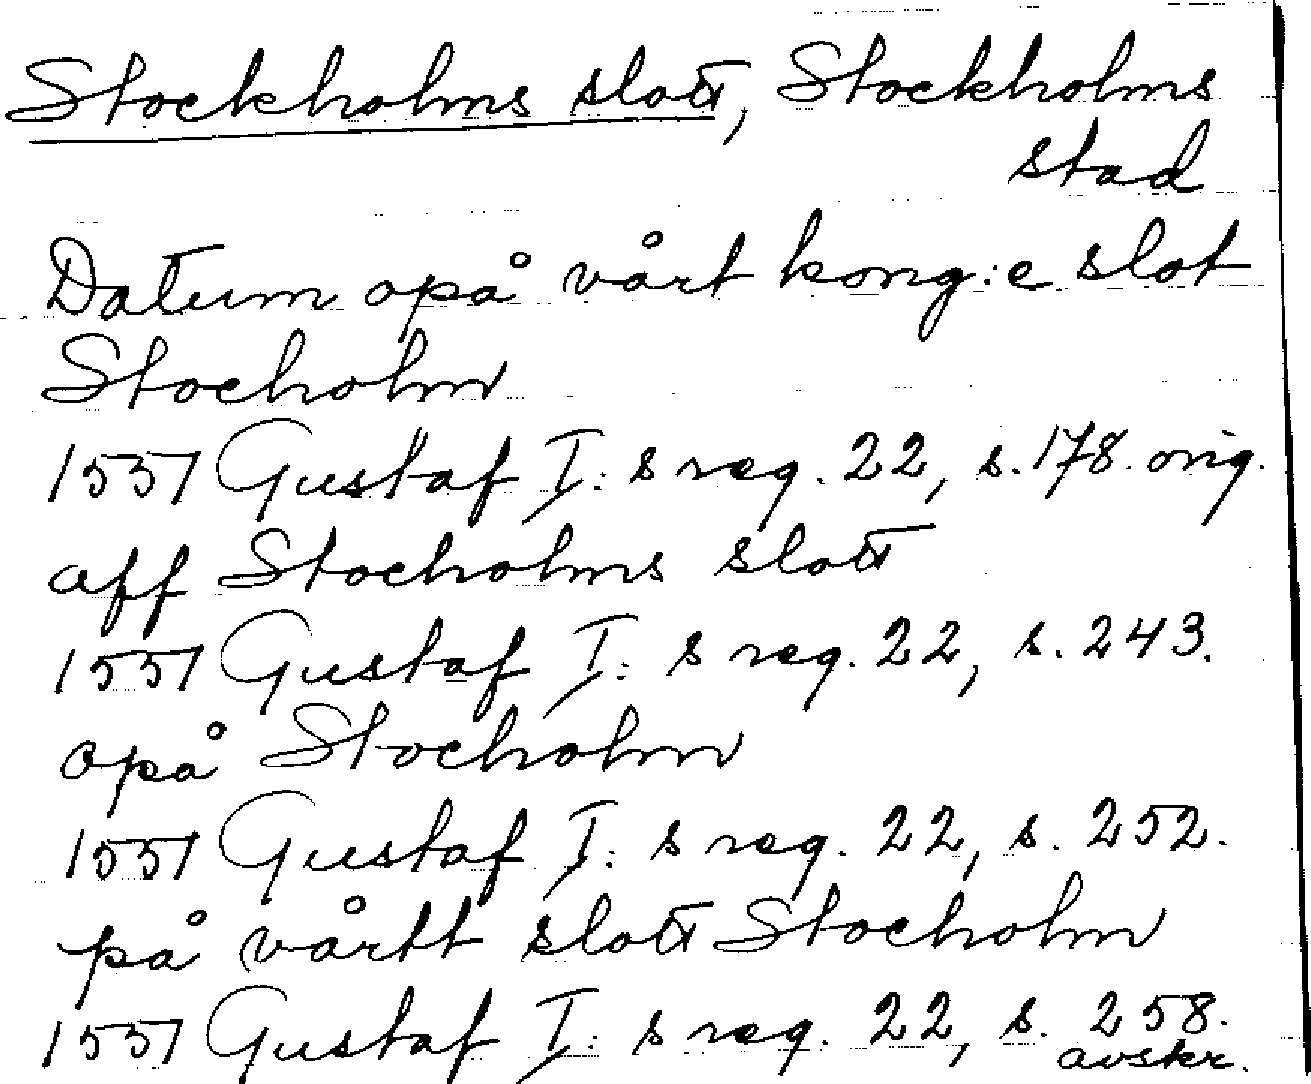 Stockholms slott, Stockholms
stad
Datum opå vårt kong:e slot
Stocholm
1551 Gustaf I:s reg. 22, s. 178. orig.
aff Stocholms slott
1551 Gustaf I:s reg. 22, s. 243.
opå Stocholm
1551 Gustaf I:s reg. 22, s. 252.
på vårtt slott Stocholm
1551 Gustaf I:s reg. 22, s. 258.
avskr.